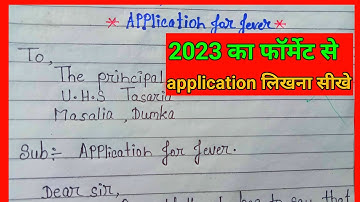 * Application for fever *
2023 का फॉर्मेट से
application लिखना सीखे
To,
The principal
U.H.S Tasaria
Masalia, Dumka
Sub:- Application for fever.
Dear sir,
to say that